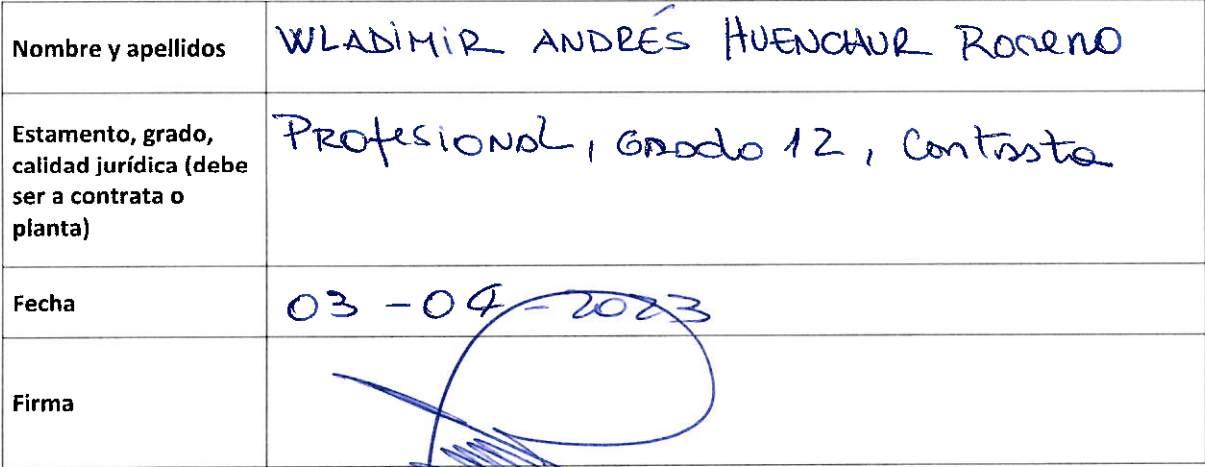 Nombre y apellidos
WLADIMIR ANDRÉS HUENCHUR Romeno
Estamento, grado,
calidad jurídica (debe
ser a contrata o
planta)
Profesional, Grado 12, Contrata
Fecha
03-04-2023
Firma